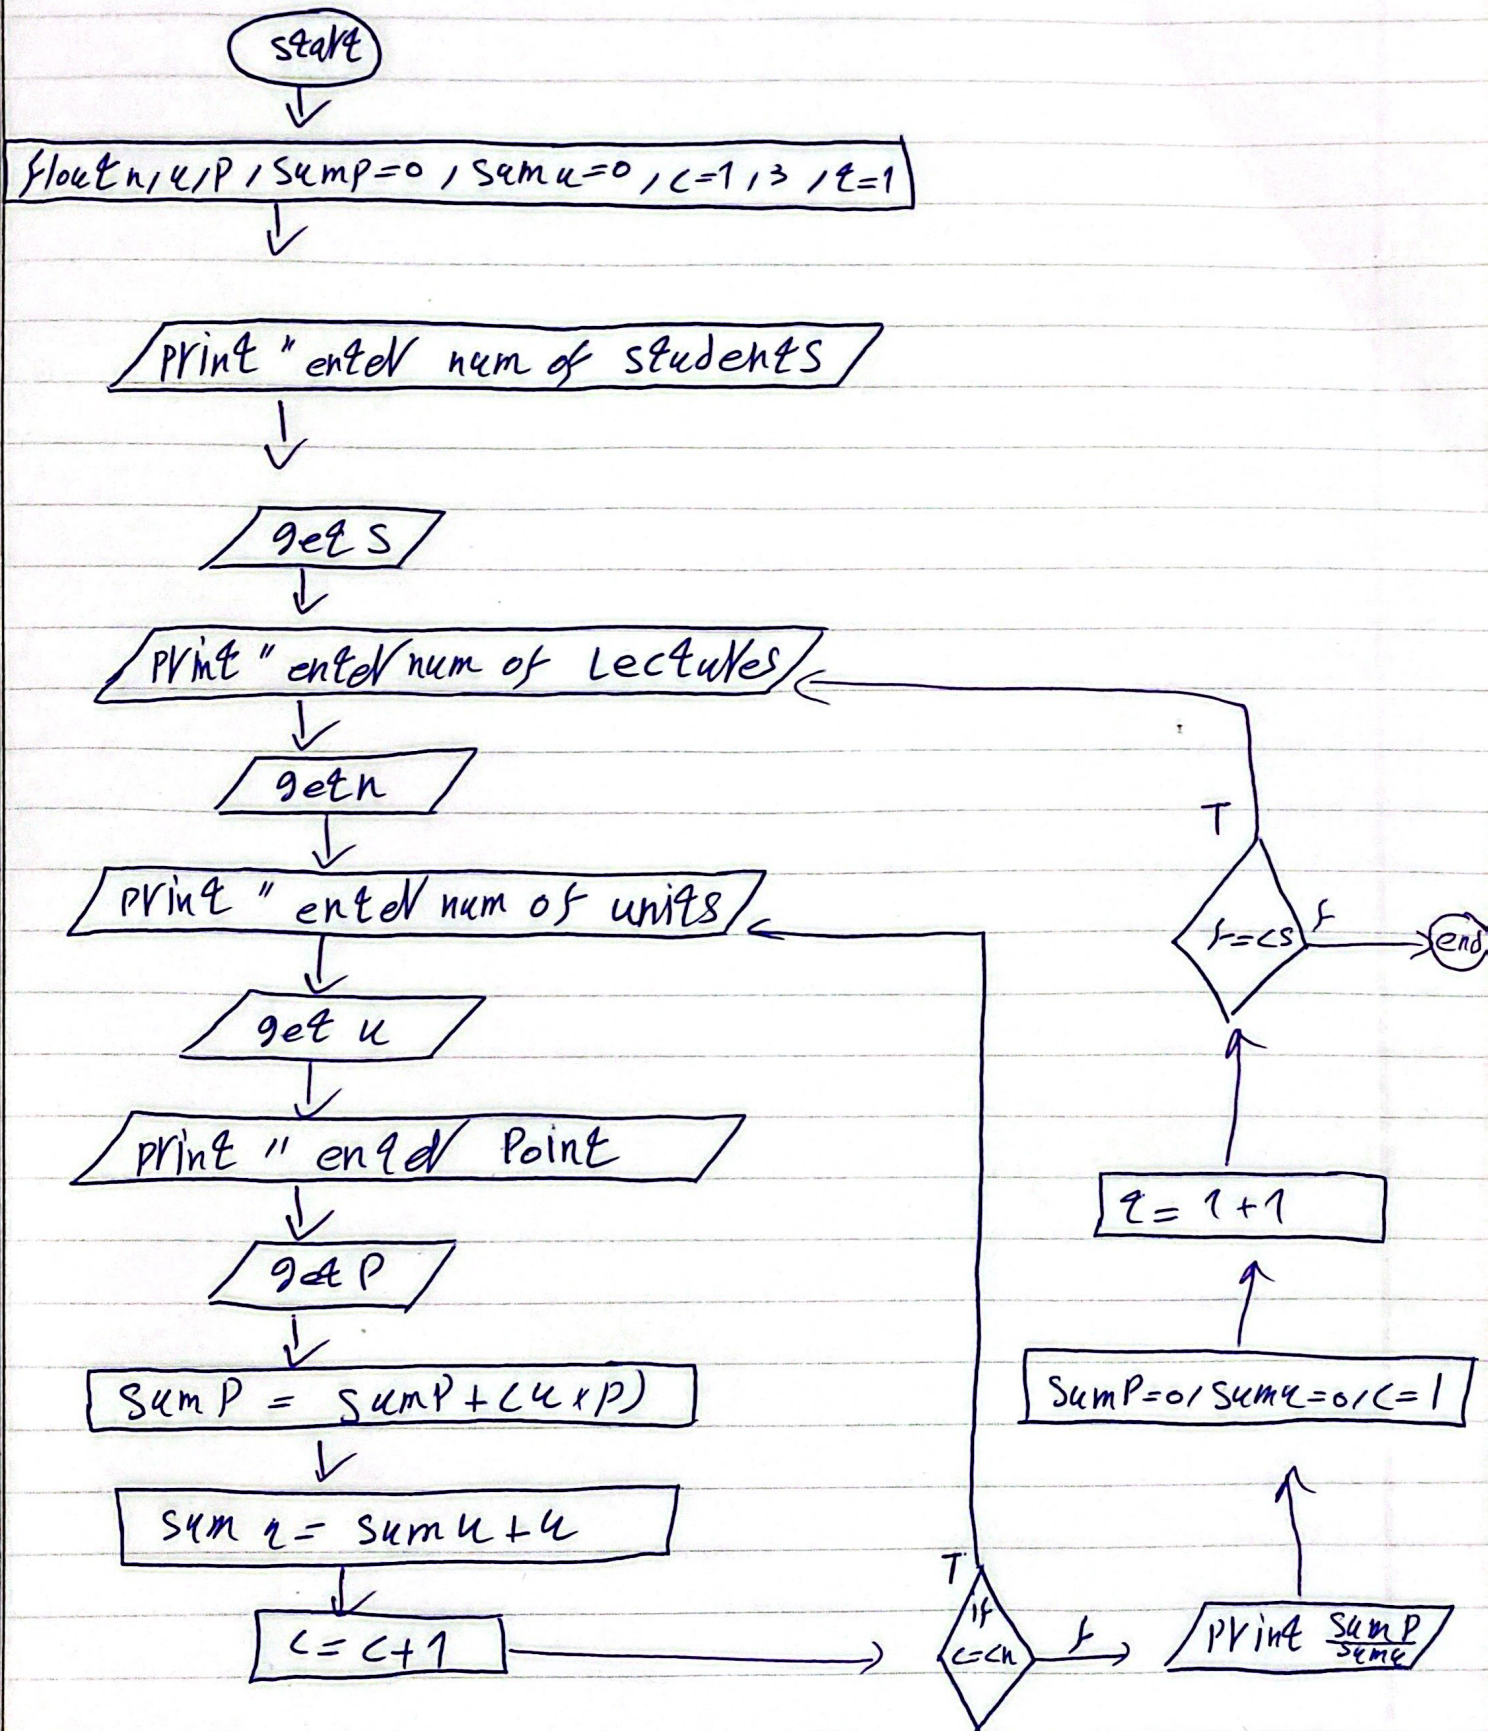 start
float n, u, P, SumP=0, Sumu=0, c=1, s, t=1
print " enter num of students
get s
print " enter num of Lectures
get n
print " enter num of units
get u
print " enter Point
get P
SumP = SumP+(u×p)
sum u = sum u + u
c = c+1
T
if
c=<n
f
print SumP/Sumu
SumP=0, Sumu=0, c=1
t = 1+1
T
t=<s
f
end